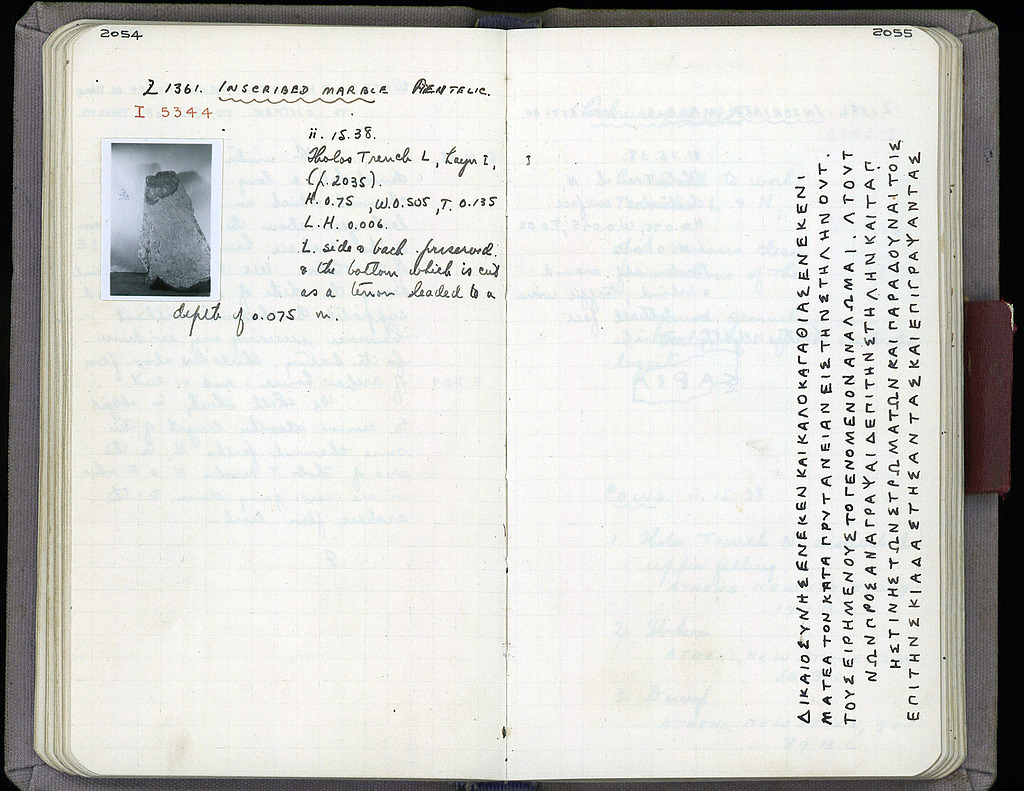 2054
Σ 1361. INSCRIBED MARBLE PENTELIC.
I 5344
ii. 15.38.
Tholos Trench L, Layer I,
(p. 2035).
H. 0.75, W. 0.505, T. 0.135
L.H. 0.006.
L. side & back preserved.
& the bottom which is cut
as a tenon leaded to a
depth of 0.075 m.
2055
ΔΙΚΑΙΟΣΥΝΗΣΕΝΕΚΕΝΚΑΙΚΑΛΟΚΑΓΑΘΙΑΣΕΝΕΚΕΝΙ
ΜΑΤΕΑΤΟΝΚΑΤΑΠΡΥΤΑΝΕΙΑΝΕΙΣΤΗΝΣΤΗΛΗΝΟΥΤ.
ΤΟΥΣΕΙΡΗΜΕΝΟΥΣΤΟΓΕΝΟΜΕΝΟΝΑΝΑΛΩΜΑΙ.ΛΤΟΥΤ
ΝΩΝΠΡΟΣΑΝΑΓΡΑΨΑΙΔΕΠΙΤΗΝΣΤΗΛΗΝΚΑΙΤΑΓ
ΗΣΤΙΝΗΣΤΩΝΣΤΡΩΜΑΤΩΝΚΑΙΠΑΡΑΔΟΥΝΑΙΤΟΙΣ
ΕΠΙΤΗΝΣΚΙΑΔΑΣΤΗΣΑΝΤΑΣΚΑΙΕΠΙΓΡΑΨΑΝΤΑΣ